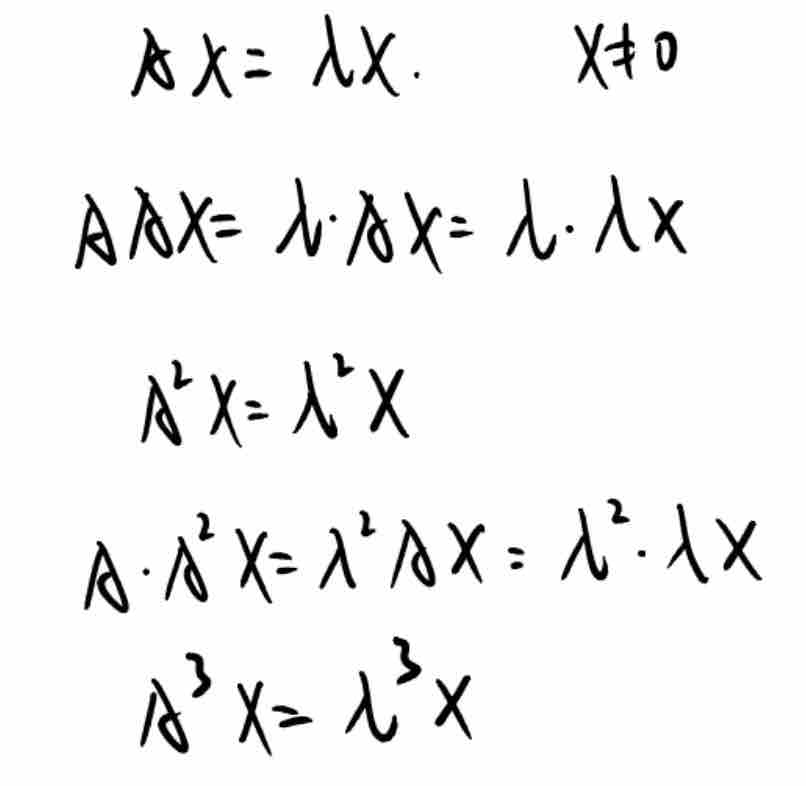 AX = λX.    X ≠ 0
AAX = λ·AX = λ·λX
A²X = λ²X
A·A²X = λ²AX = λ²·λX
A³X = λ³X